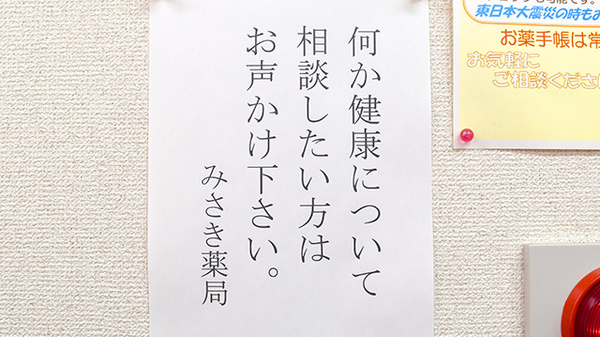 何か健康について
相談したい方は
お声かけ下さい。
みさき薬局
東日本大震災の時もお
お薬手帳は常
お気軽に
ご相談くださ